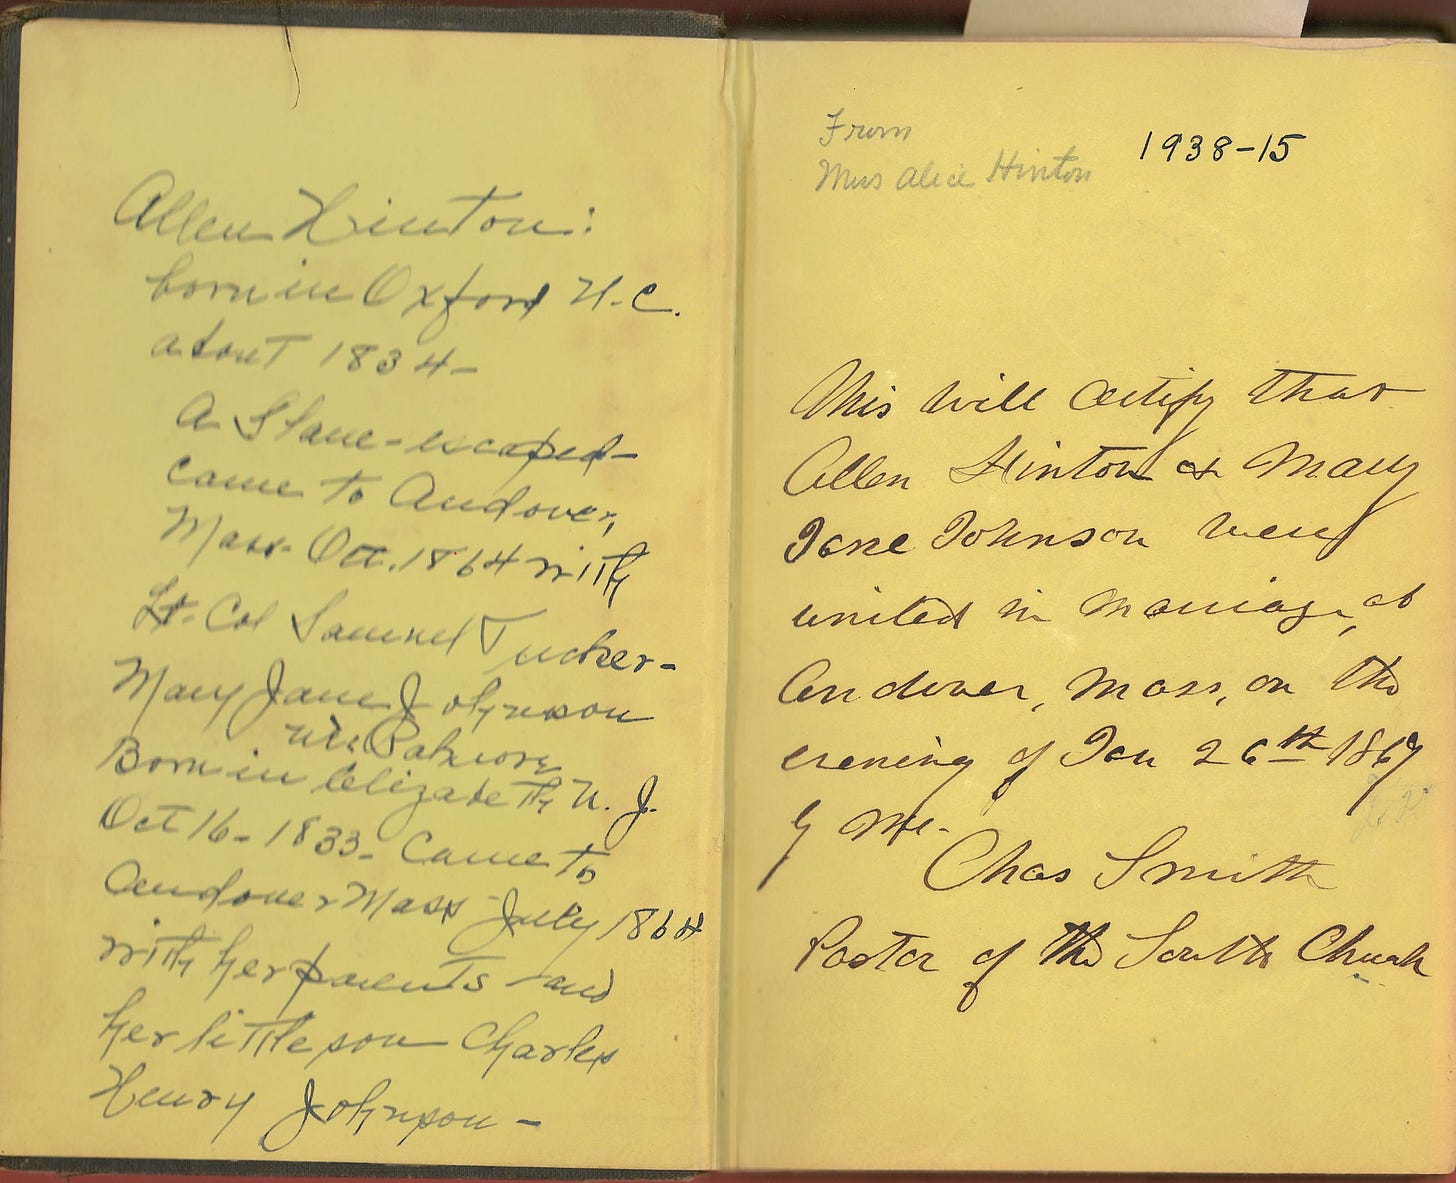 Allen Hinton:
born in Oxford N.C.
about 1834-
A Slave-escaped-
came to Andover,
Mass. Oct. 1864 with
Lt. Col Samuel Tucker-
Mary Jane Johnson
née
Born in Elizabeth N. J.
Oct 16- 1833- Came to
Andover Mass July 1864
with her parents and
her little son Charles
Henry Johnson-
From
Miss Alice Hinton
1938-15
This will certify that
Allen Hinton & Mary
Jane Johnson were
united in marriage, at
Andover, Mass, on the
evening of Jan 26th 1867
by me.
Chas Smith
Pastor of the South Church